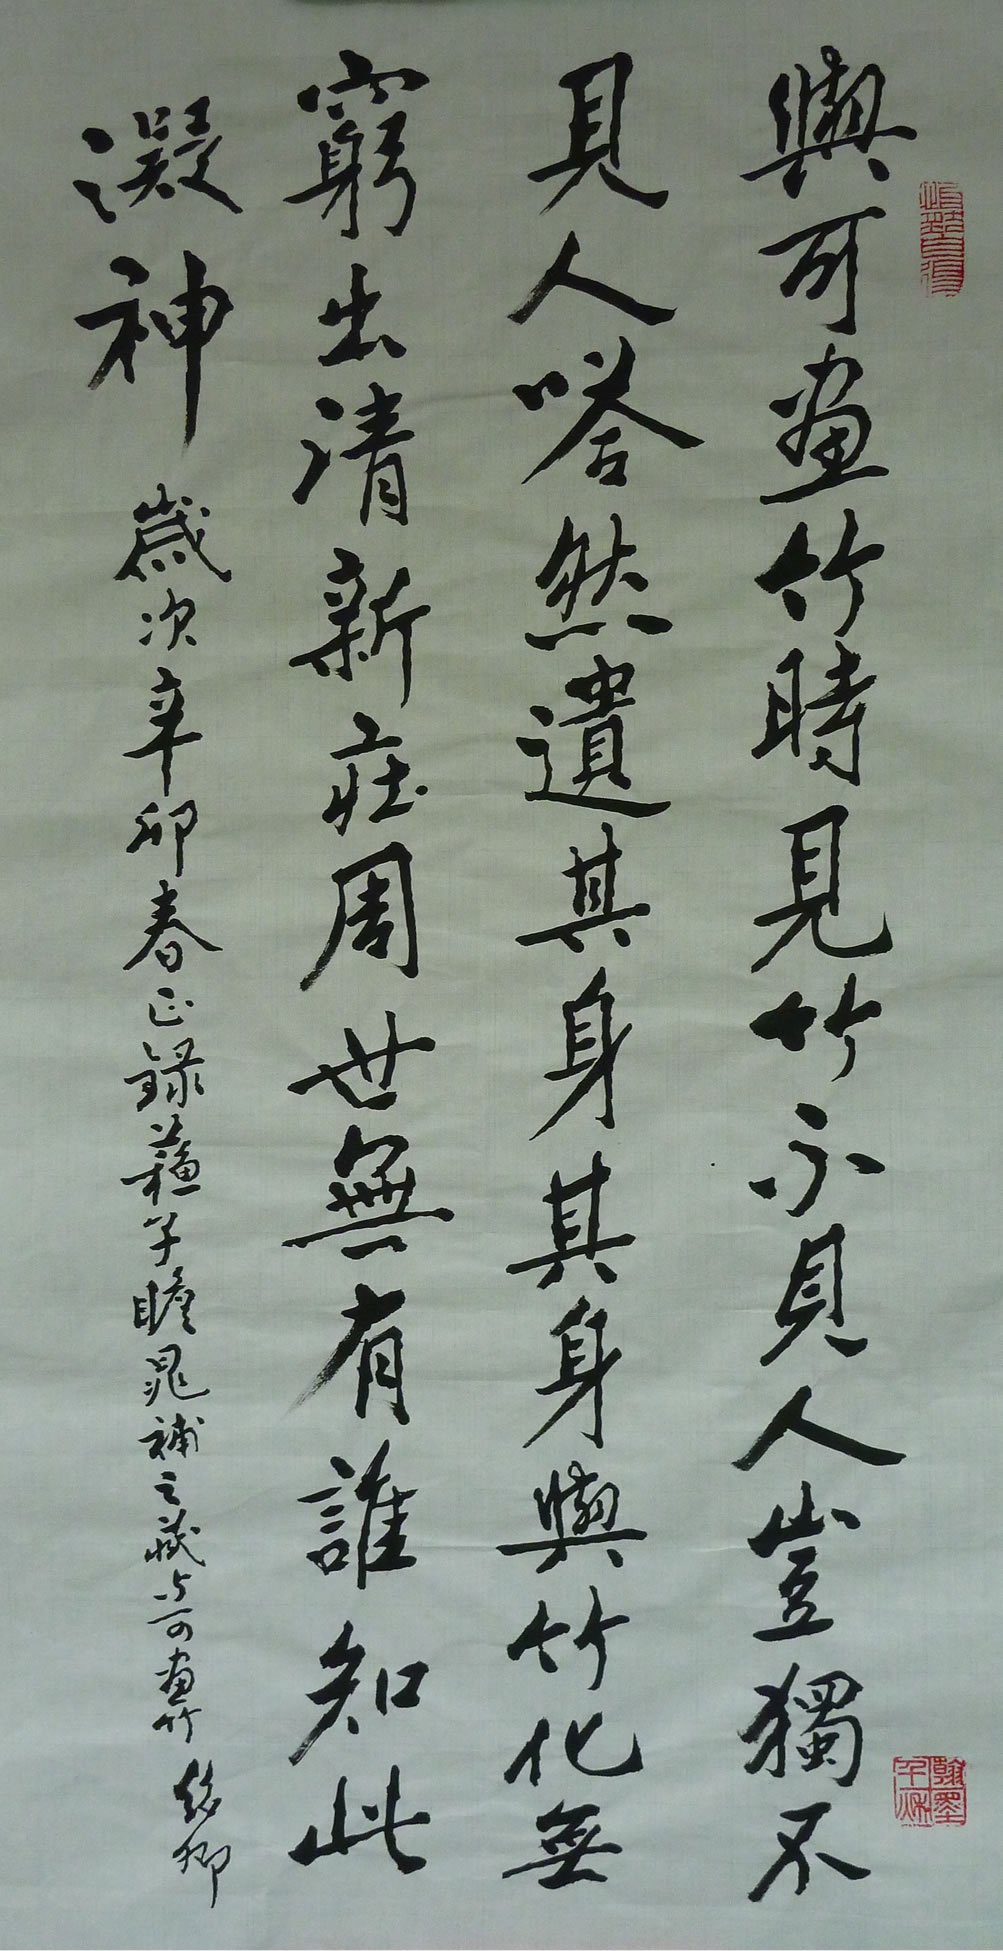 與可畫竹時見竹不見人豈獨不
見人嗒然遺其身其身與竹化無
窮出清新莊周世無有誰知此
凝神
歲次辛卯春正錄蘇子瞻晁補之藏与可畫竹
翰墨千秋